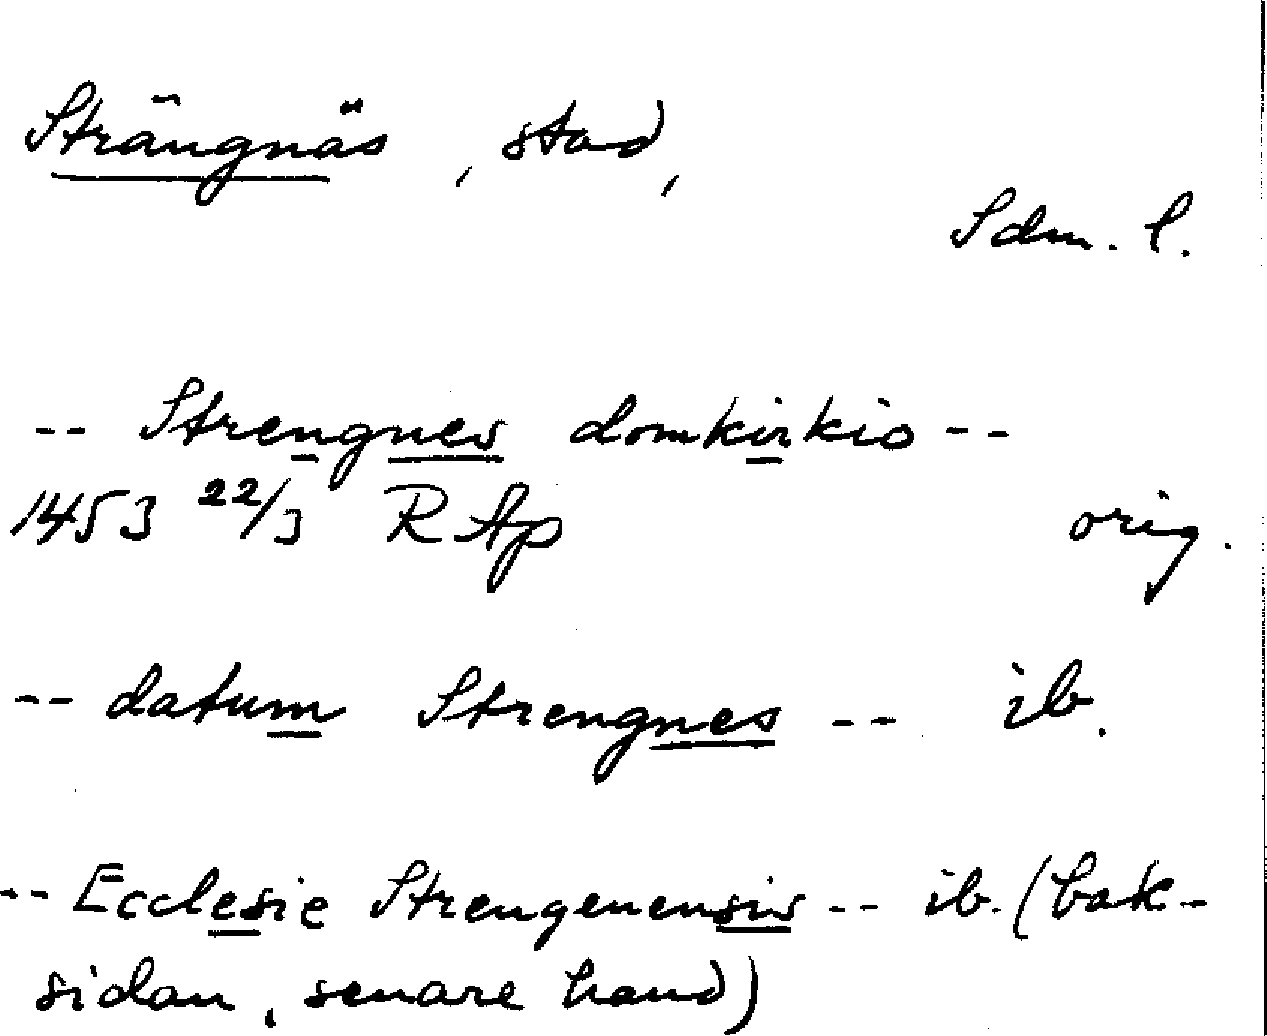 Strängnäs, stad,
Sdm. l.
-- Strengnes domkirkio --
1453 22/3 RAp orig.
-- datum Strengnes -- ib.
-- Ecclesie Strengenensis -- ib. (bak-
sidan, senare hand)